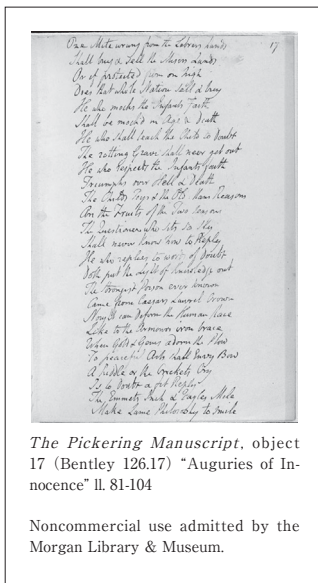 One Mite wrung from the Labrers hands 17
Shall buy & sell the Misers Lands
Or if protected from on high
Does that whole Nation sell & buy
He who mocks the Infants Faith
Shall be mock'd in Age & Death
He who shall teach the Child to Doubt
The rotting Grave shall neer get out
He who respects the Infants faith
Triumphs over Hell & Death
The Childs Toys & the Old Mans Reasons
Are the Fruits of the Two seasons
The Questioner who sits so sly
Shall never know how to Reply
He who replies to words of Doubt
Doth put the Light of Knowledge out
The Strongest Poison ever known
Came from Caesars Laurel Crown
Nought can Deform the Human Race
Like to the Armours iron brace
When Gold & Gems adorn the Plow
To peaceful Arts shall Envy Bow
A Riddle or the Crickets Cry
Is to Doubt a fit Reply
The Emmets Inch & Eagles Mile
Make Lame Philosophy to smile
The Pickering Manuscript, object
17 (Bentley 126.17) “Auguries of In-
nocence” ll. 81-104
Noncommercial use admitted by the
Morgan Library & Museum.